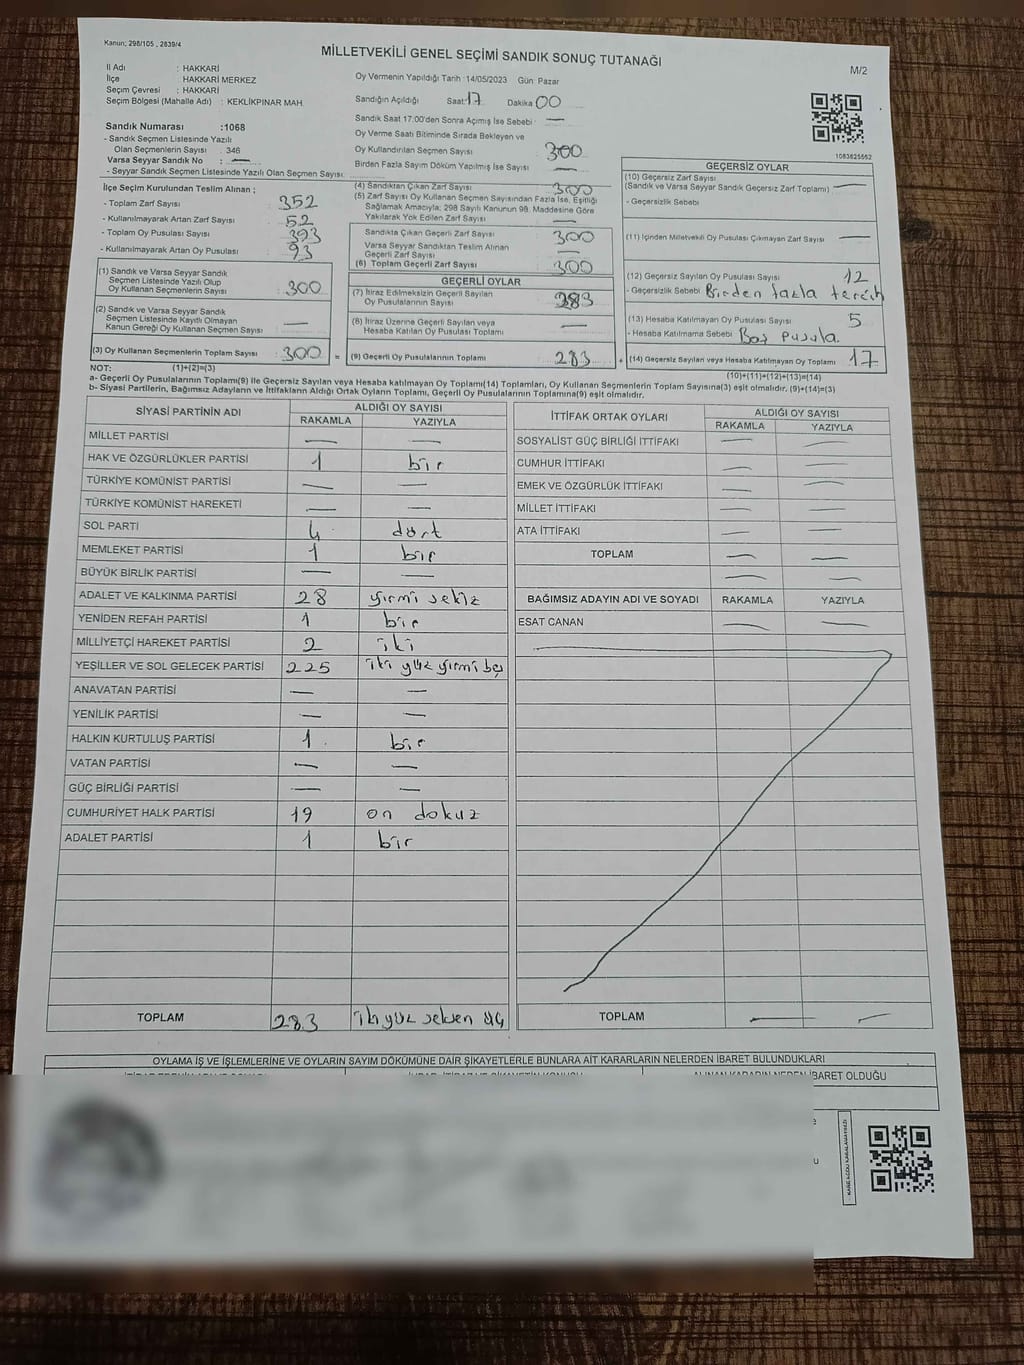 Kanun; 298/105 , 2839/4
MİLLETVEKİLİ GENEL SEÇİMİ SANDIK SONUÇ TUTANAĞI
M/2
İl Adı : HAKKARİ
İlçe : HAKKARİ MERKEZ
Seçim Çevresi : HAKKARİ
Seçim Bölgesi (Mahalle Adı) : KEKLİKPINAR MAH.
Sandık Numarası :1068
- Sandık Seçmen Listesinde Yazılı
Olan Seçmenlerin Sayısı : 346
Varsa Seyyar Sandık No : —
- Seyyar Sandık Seçmen Listesinde Yazılı Olan Seçmen Sayısı:
Oy Vermenin Yapıldığı Tarih :14/05/2023 Gün: Pazar
Sandığın Açıldığı Saat:17 Dakika 00
Sandık Saat 17:00'den Sonra Açımış İse Sebebi : —
Oy Verme Saati Bitiminde Sırada Bekleyen ve
Oy Kullandırılan Seçmen Sayısı 300
Birden Fazla Sayım Döküm Yapılmış İse Sayısı —
1083625552
İlçe Seçim Kurulundan Teslim Alınan ;
- Toplam Zarf Sayısı : 352
- Kullanılmayarak Artan Zarf Sayısı : 52
- Toplam Oy Pusulası Sayısı : 393
- Kullanılmayarak Artan Oy Pusulası : 93
(1) Sandık ve Varsa Seyyar Sandık
Seçmen Listesinde Yazılı Olup
Oy Kullanan Seçmenlerin Sayısı : 300
(2) Sandık ve Varsa Seyyar Sandık
Seçmen Listesinde Kayıtlı Olmayan
Kanun Gereği Oy Kullanan Seçmen Sayısı : —
(3) Oy Kullanan Seçmenlerin Toplam Sayısı : 300 =
(4) Sandıktan Çıkan Zarf Sayısı : 300
(5) Zarf Sayısı Oy Kullanan Seçmen Sayısından Fazla İse, Eşitliği
Sağlamak Amacıyla; 298 Sayılı Kanunun 98. Maddesine Göre
Yakılarak Yok Edilen Zarf Sayısı : —
Sandıkta Çıkan Geçerli Zarf Sayısı : 300
Varsa Seyyar Sandıktan Teslim Alınan
Geçerli Zarf Sayısı : —
(6) Toplam Geçerli Zarf Sayısı : 300
GEÇERLİ OYLAR
(7) İtiraz Edilmeksizin Geçerli Sayılan
Oy Pusulalarının Sayısı : 283
(8) İtiraz Üzerine Geçerli Sayılan veya
Hesaba Katılan Oy Pusulası Toplamı : —
(9) Geçerli Oy Pusulalarının Toplamı : 283 +
GEÇERSİZ OYLAR
(10) Geçersiz Zarf Sayısı
(Sandık ve Varsa Seyyar Sandık Geçersiz Zarf Toplamı) : —
- Geçersizlik Sebebi :
(11) İçinden Milletvekili Oy Pusulası Çıkmayan Zarf Sayısı : —
(12) Geçersiz Sayılan Oy Pusulası Sayısı : 12
- Geçersizlik Sebebi : Birden fazla tercih
(13) Hesaba Katılmayan Oy Pusulası Sayısı : 5
- Hesaba Katılmama Sebebi : Boş pusula.
(14) Geçersiz Sayılan veya Hesaba Katılmayan Oy Toplamı : 17
NOT: (1)+(2)=(3)
(10)+(11)+(12)+(13)=(14)
a- Geçerli Oy Pusulalarının Toplamı(9) ile Geçersiz Sayılan veya Hesaba katılmayan Oy Toplamı(14) Toplamları, Oy Kullanan Seçmenlerin Toplam Sayısına(3) eşit olmalıdır. (9)+(14)=(3)
b- Siyasi Partilerin, Bağımsız Adayların ve İttifakların Aldığı Ortak Oyların Toplamı, Geçerli Oy Pusulalarının Toplamına(9) eşit olmalıdır.
SİYASİ PARTİNİN ADI ALDIĞI OY SAYISI
RAKAMLA YAZIYLA
MİLLET PARTİSİ — —
HAK VE ÖZGÜRLÜKLER PARTİSİ 1 bir
TÜRKİYE KOMÜNİST PARTİSİ — —
TÜRKİYE KOMÜNİST HAREKETİ — —
SOL PARTİ 4 dört
MEMLEKET PARTİSİ 1 bir
BÜYÜK BİRLİK PARTİSİ — —
ADALET VE KALKINMA PARTİSİ 28 yirmi sekiz
YENİDEN REFAH PARTİSİ 1 bir
MİLLİYETÇİ HAREKET PARTİSİ 2 iki
YEŞİLLER VE SOL GELECEK PARTİSİ 225 iki yüz yirmi beş
ANAVATAN PARTİSİ — —
YENİLİK PARTİSİ — —
HALKIN KURTULUŞ PARTİSİ 1. bir
VATAN PARTİSİ — —
GÜÇ BİRLİĞİ PARTİSİ — —
CUMHURİYET HALK PARTİSİ 19 on dokuz
ADALET PARTİSİ 1 bir
TOPLAM 283 iki yüz seksen üç
İTTİFAK ORTAK OYLARI ALDIĞI OY SAYISI
RAKAMLA YAZIYLA
SOSYALİST GÜÇ BİRLİĞİ İTTİFAKI — —
CUMHUR İTTİFAKI — —
EMEK VE ÖZGÜRLÜK İTTİFAKI — —
MİLLET İTTİFAKI — —
ATA İTTİFAKI — —
TOPLAM — —
— —
BAĞIMSIZ ADAYIN ADI VE SOYADI RAKAMLA YAZIYLA
ESAT CANAN — —
TOPLAM — —
OYLAMA İŞ VE İŞLEMLERİNE VE OYLARIN SAYIM DÖKÜMÜNE DAİR ŞİKAYETLERLE BUNLARA AİT KARARLARIN NELERDEN İBARET BULUNDUKLARI
ALINAN KARARIN NEDEN İBARET OLDUĞU